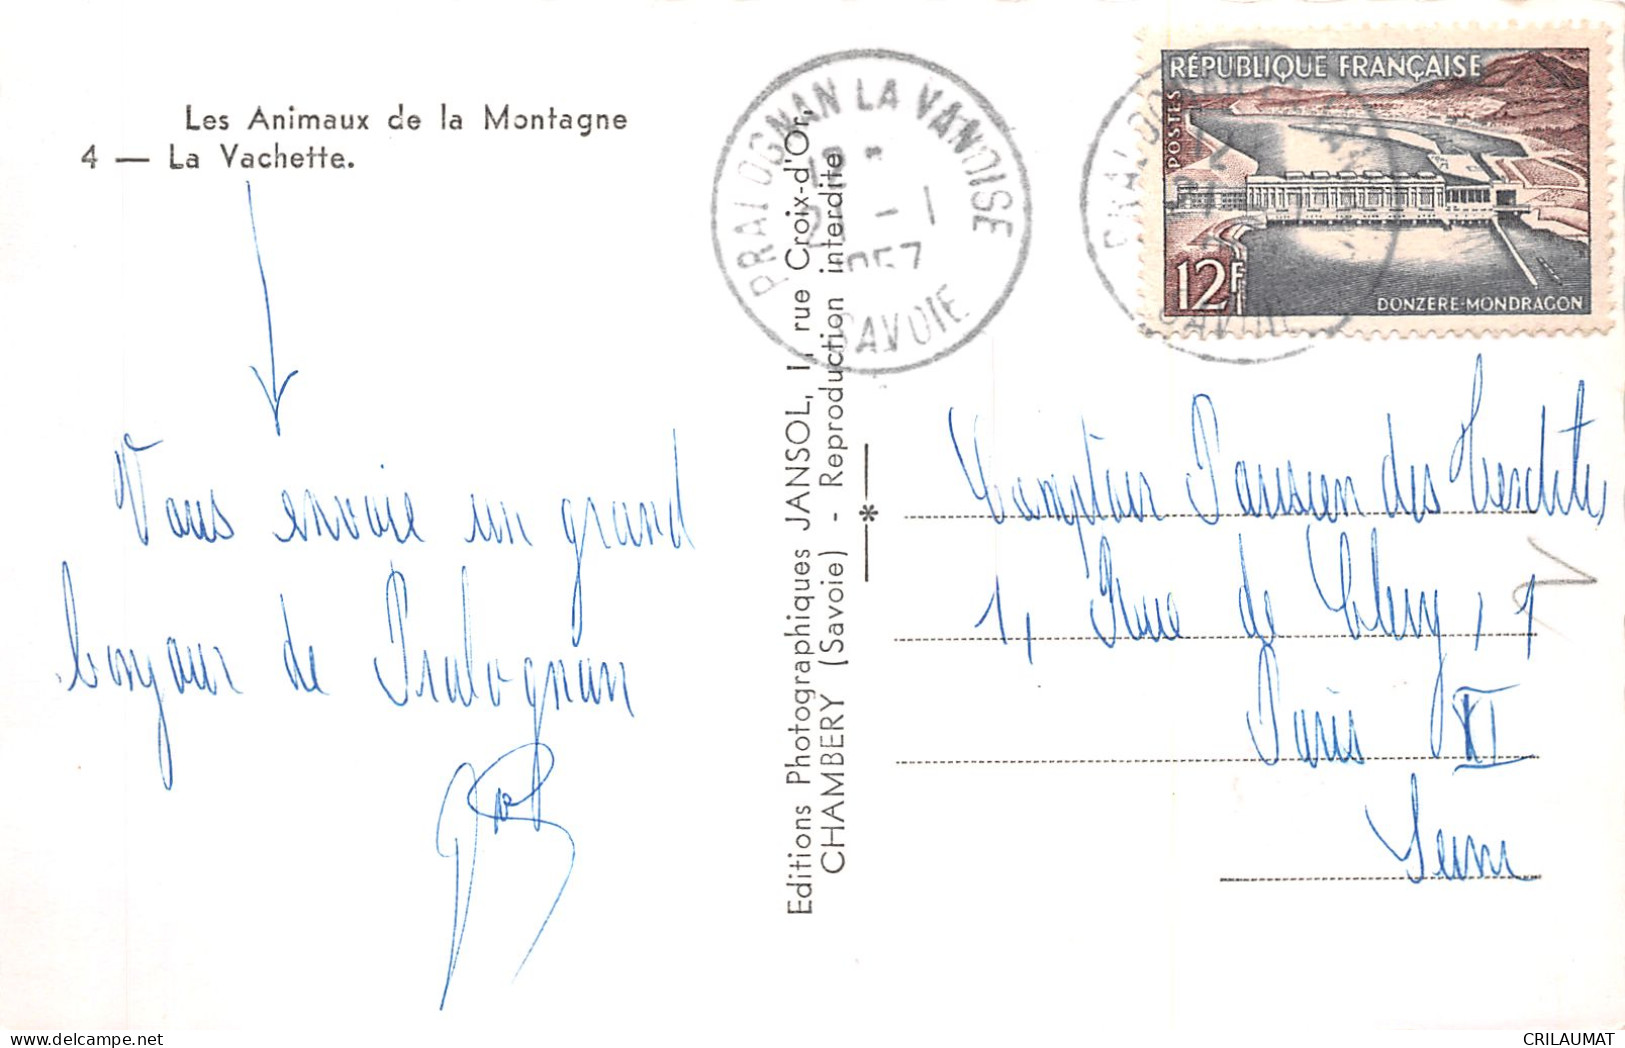 Les Animaux de la Montagne
4 — La Vachette.
Vous envoie un grand
bonjour de Pralognan
Editions Photographiques JANSOL, 1, rue Croix-d'Or,
CHAMBERY (Savoie) - Reproduction interdite
*
PRALOGNAN LA VANOISE
1957
SAVOIE
RÉPUBLIQUE FRANÇAISE
POSTES
12F
DONZÈRE-MONDRAGON
Comptoir Parisien des
1, Rue de
Paris XI
Seine
CRILAUMAT